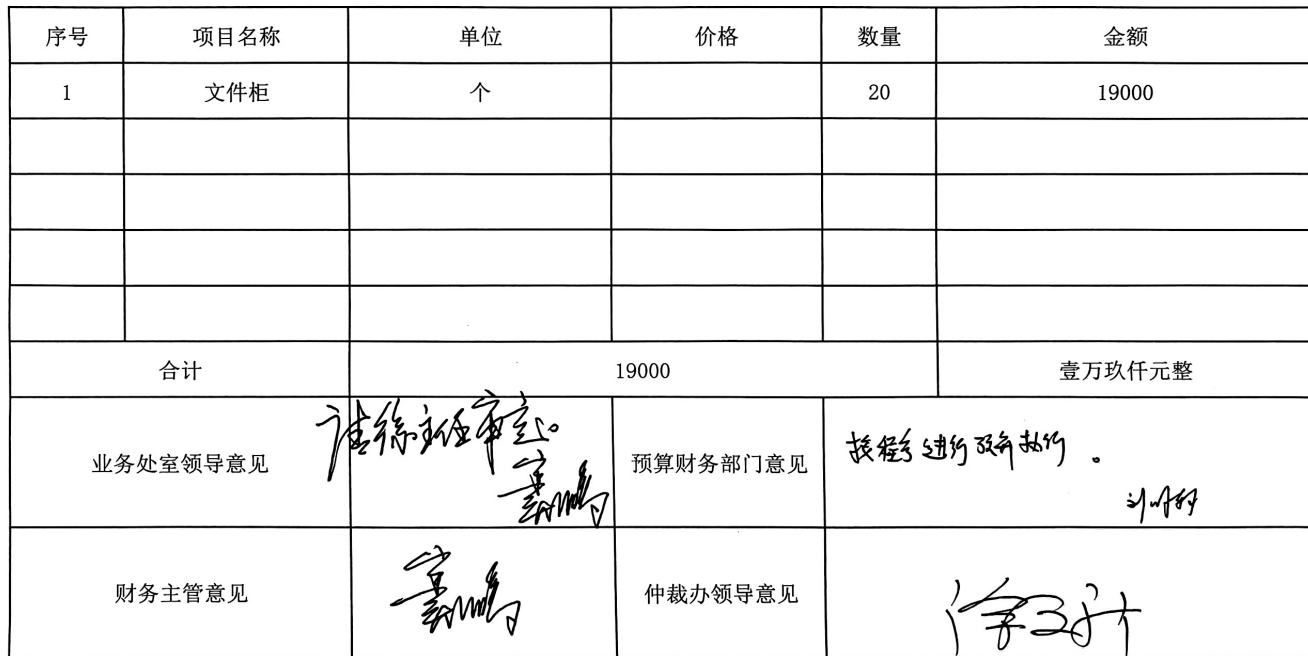 序号 项目名称 单位 价格 数量 金额
1 文件柜 个 20 19000
合计 19000 壹万玖仟元整
业务处室领导意见 请徐主任审定。 预算财务部门意见 按程序进行政府执行。
财务主管意见 仲裁办领导意见